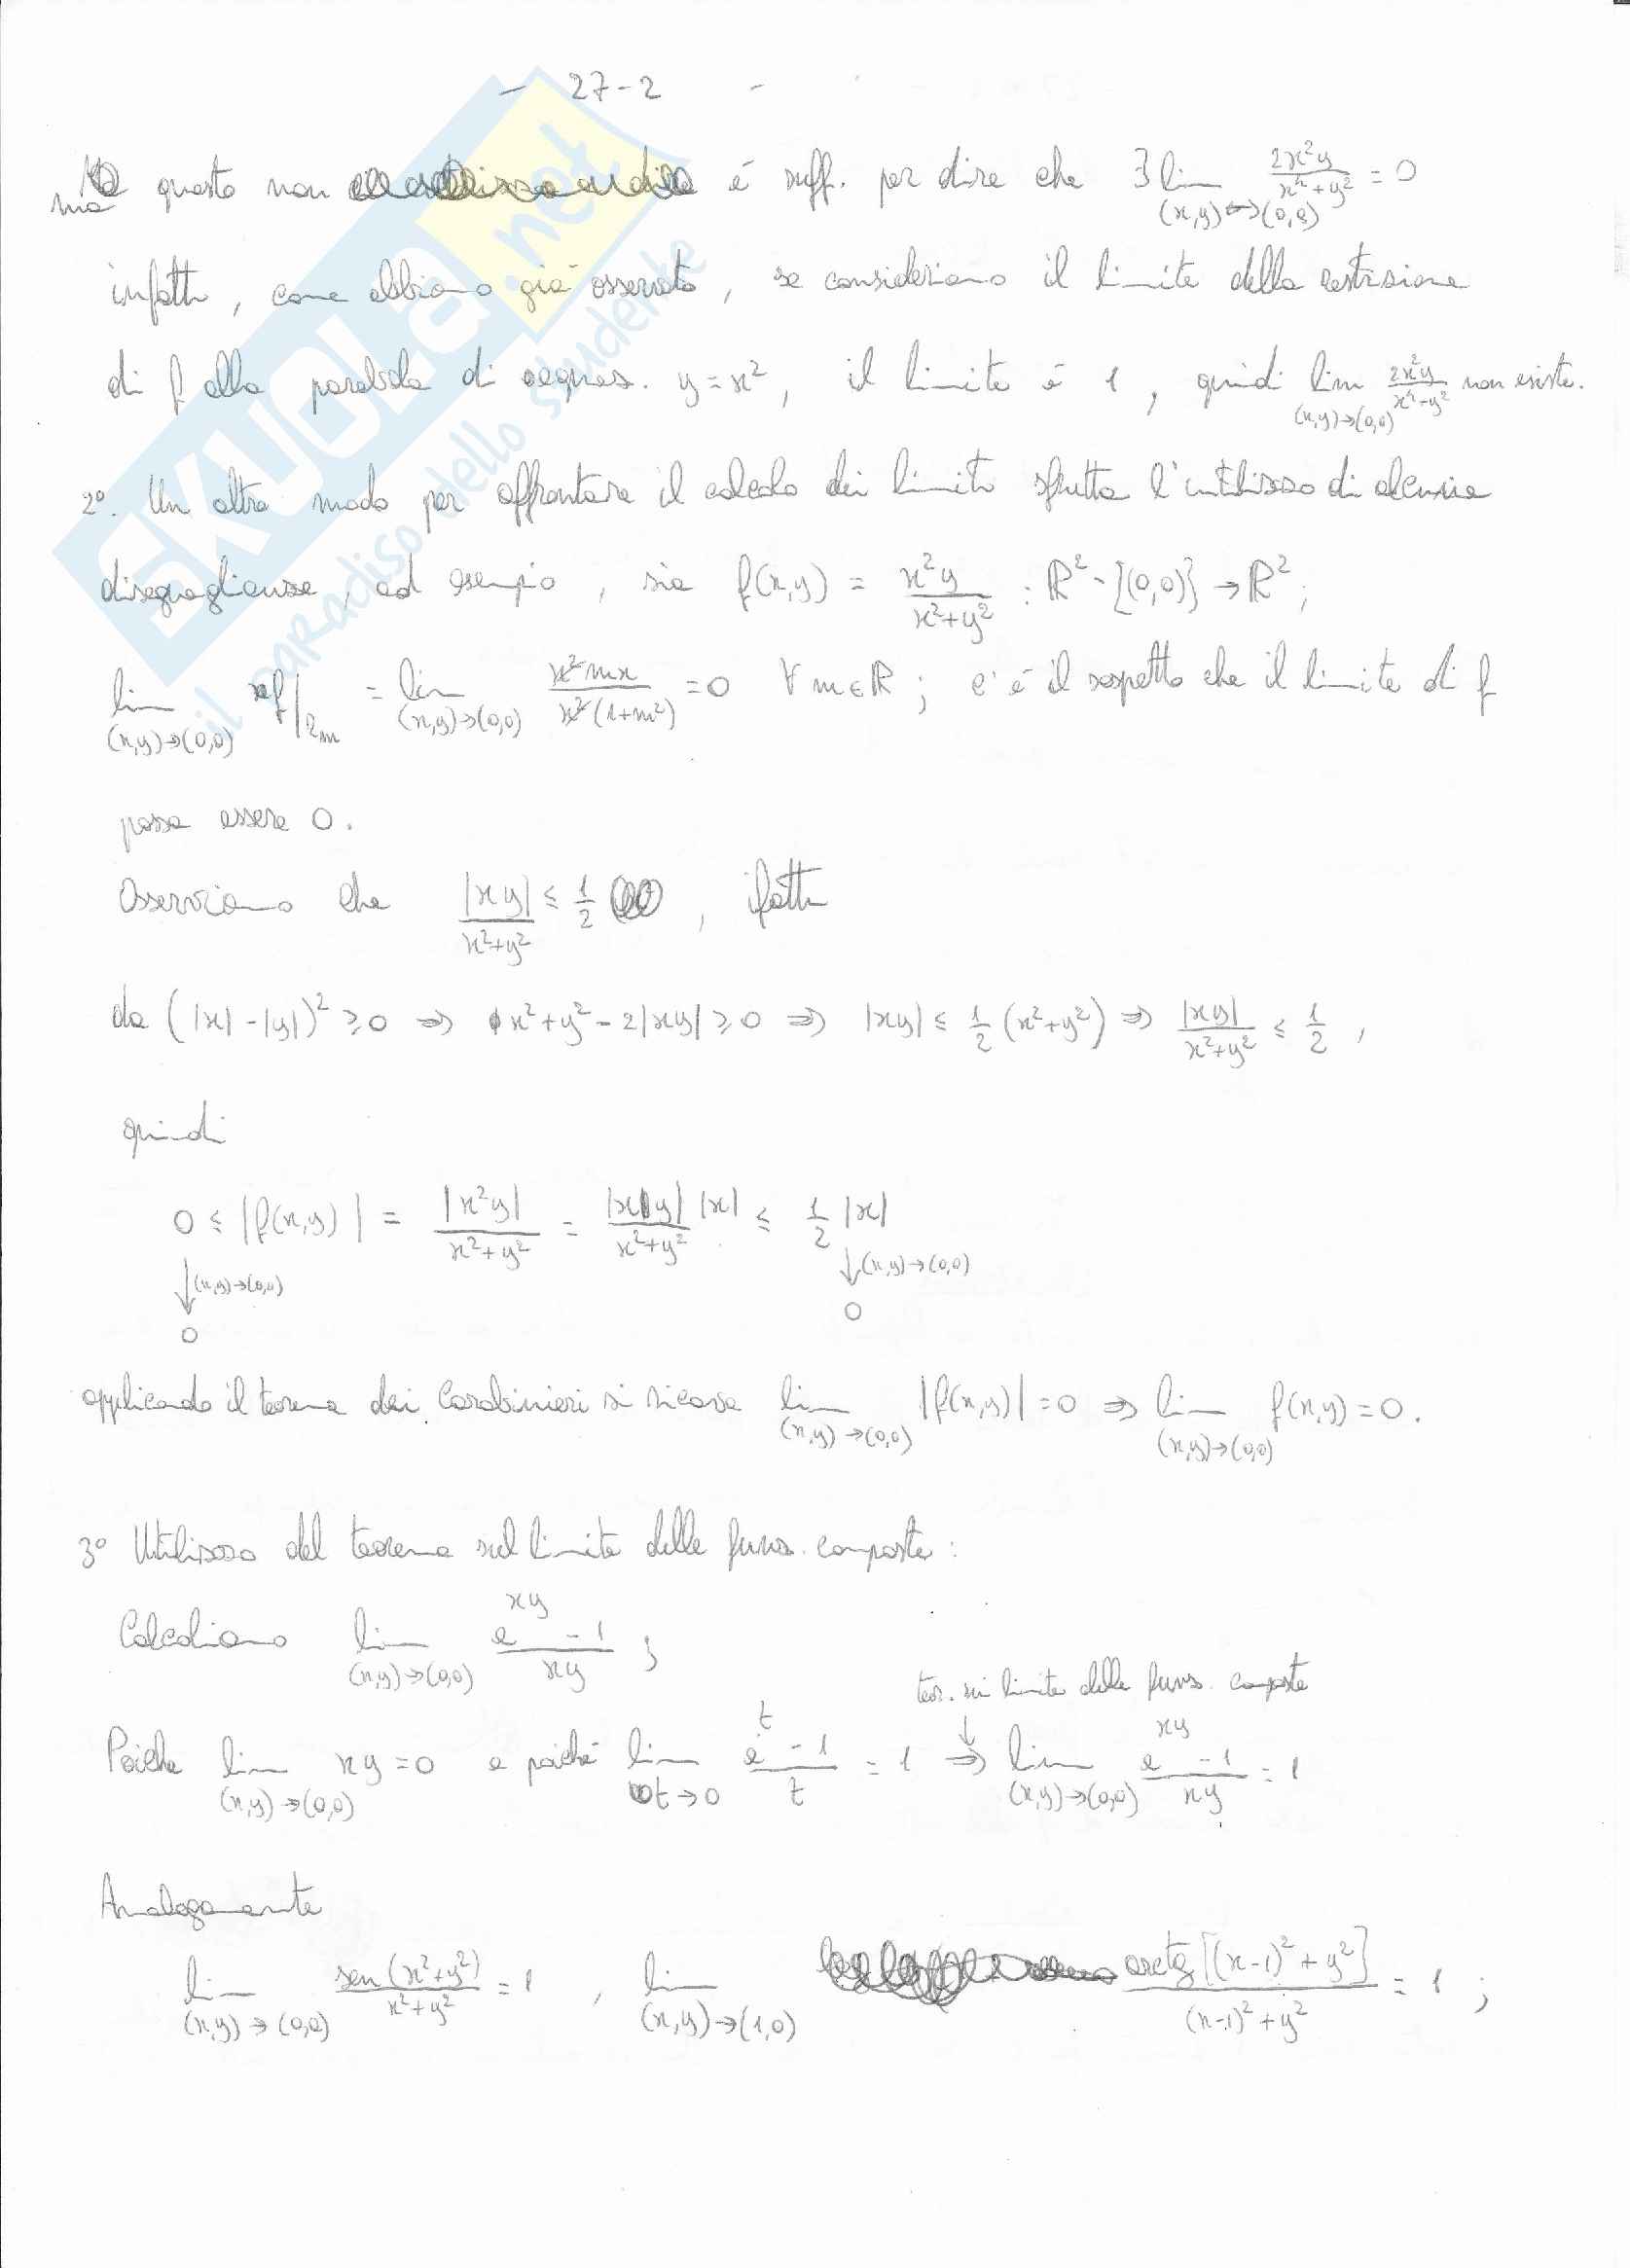 - 27-2 -
ma questo non é suff. per dire che ∃ lim (x,y)→(0,0) 2x²y/(x⁴+y²) = 0
infatti, come abbiamo già osservato, se consideriamo il limite della restrizione
di f alla parabola di equaz. y=x², il limite é 1, quindi lim (x,y)→(0,0) 2x²y/(x⁴+y²) non esiste.
2°. Un altro modo per affrontare il calcolo dei limiti sfrutta l'utilizzo di alcune
diseguaglianze, ad esempio, sia f(x,y) = x²y/(x²+y²) : ℝ² - {(0,0)} → ℝ²;
lim (x,y)→(0,0) f|r_m = lim (x,y)→(0,0) x²mx/(x²(1+m²)) = 0 ∀ m∈ℝ; c'é il sospetto che il limite di f
possa essere 0.
Osserviamo che |xy|/(x²+y²) ≤ 1/2, ifatti
da (|x|-|y|)² ≥ 0 ⇒ x²+y²-2|xy| ≥ 0 ⇒ |xy| ≤ 1/2 (x²+y²) ⇒ |xy|/(x²+y²) ≤ 1/2,
quindi
0 ≤ |f(x,y)| = |x²y|/(x²+y²) = |x||y|/(x²+y²) |x| ≤ 1/2 |x|
↓ (x,y)→(0,0) ↓ (x,y)→(0,0)
0 0
applicando il teorema dei Carabinieri si ricava lim (x,y)→(0,0) |f(x,y)| = 0 ⇒ lim (x,y)→(0,0) f(x,y) = 0.
3° Utilizzo del teorema sul limite delle funz. composte:
Calcoliamo lim (x,y)→(0,0) (e^xy - 1)/xy ;
teor. sui limiti delle funz. composte
Poiche lim (x,y)→(0,0) xy = 0 e poiché lim t→0 (e^t - 1)/t = 1 ⇒ lim (x,y)→(0,0) (e^xy - 1)/xy = 1
Analogamente
lim (x,y)→(0,0) sen(x²+y²)/(x²+y²) = 1, lim (x,y)→(1,0) arctg[(x-1)²+y²]/((x-1)²+y²) = 1;
SKUOLA.net
il paradiso dello studente